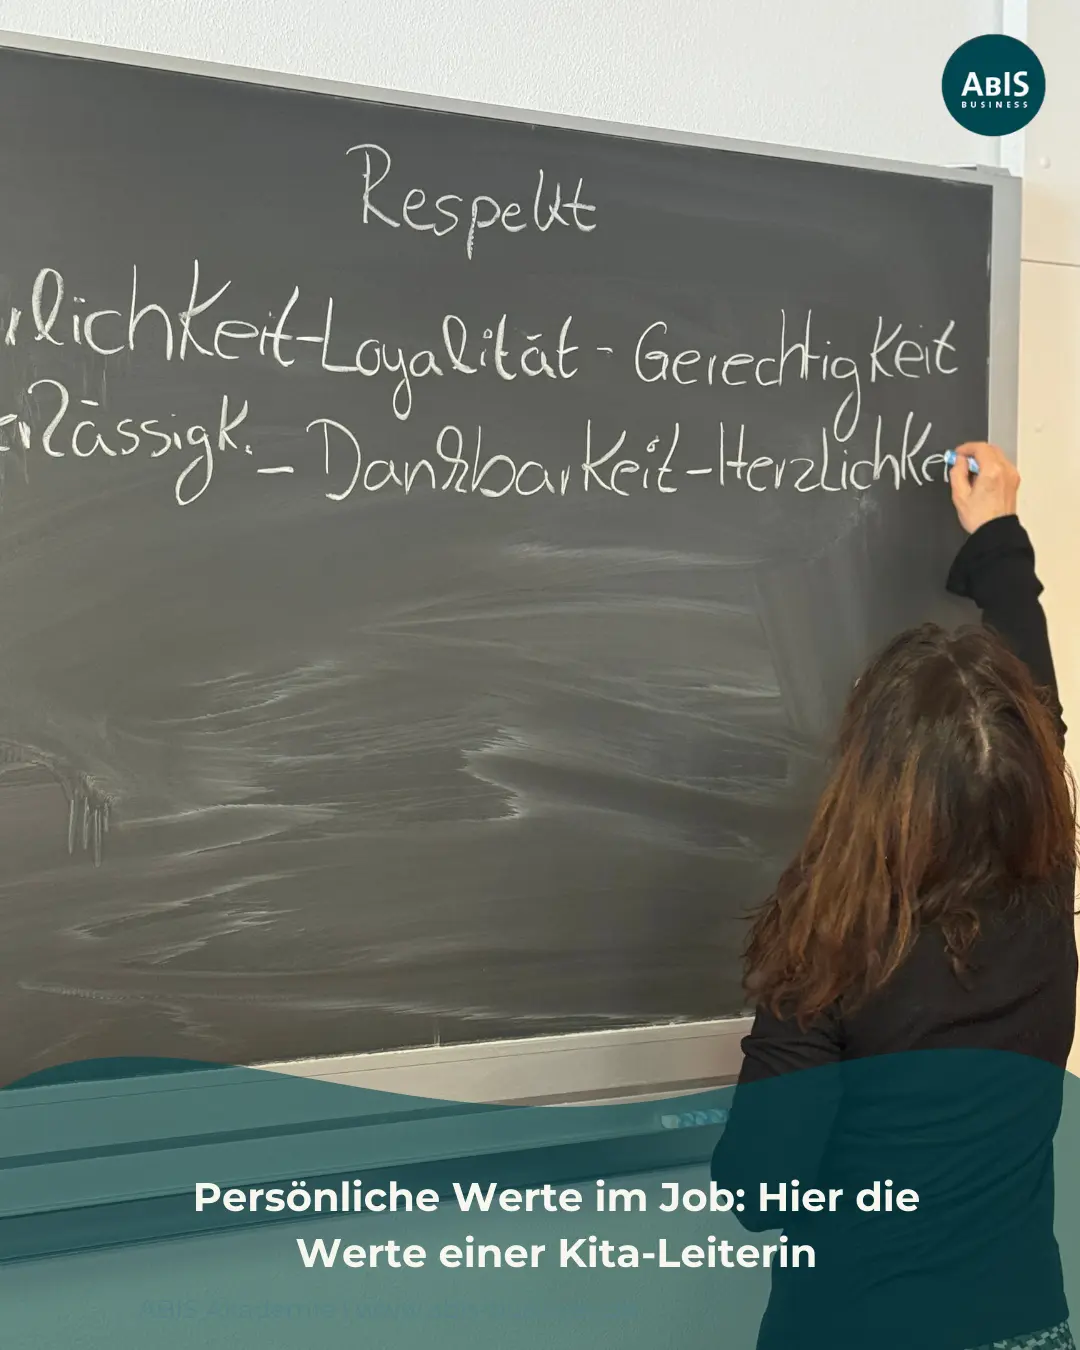 ABIS
BUSINESS
Respekt
rlichkeit-Loyalität - Gerechtigkeit
erlässigk. - Dankbarkeit-Herzlichkei
Persönliche Werte im Job: Hier die
Werte einer Kita-Leiterin